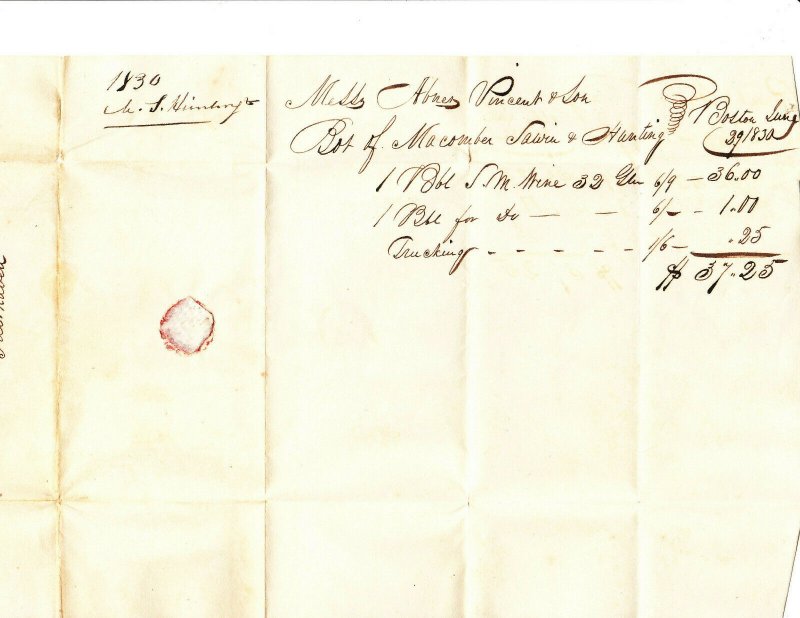 1830
Messrs Abner Vincent & Son
Boston June
29 1830
Bot of Macomber Sawin & Hunting
1 Bbl S. M. Wine 32 Gln 6/9 – 36.00
1 Bbl for Do — — 6/– – 1.00
Trucking – – – – – 1/6 – .25
$ 37.25